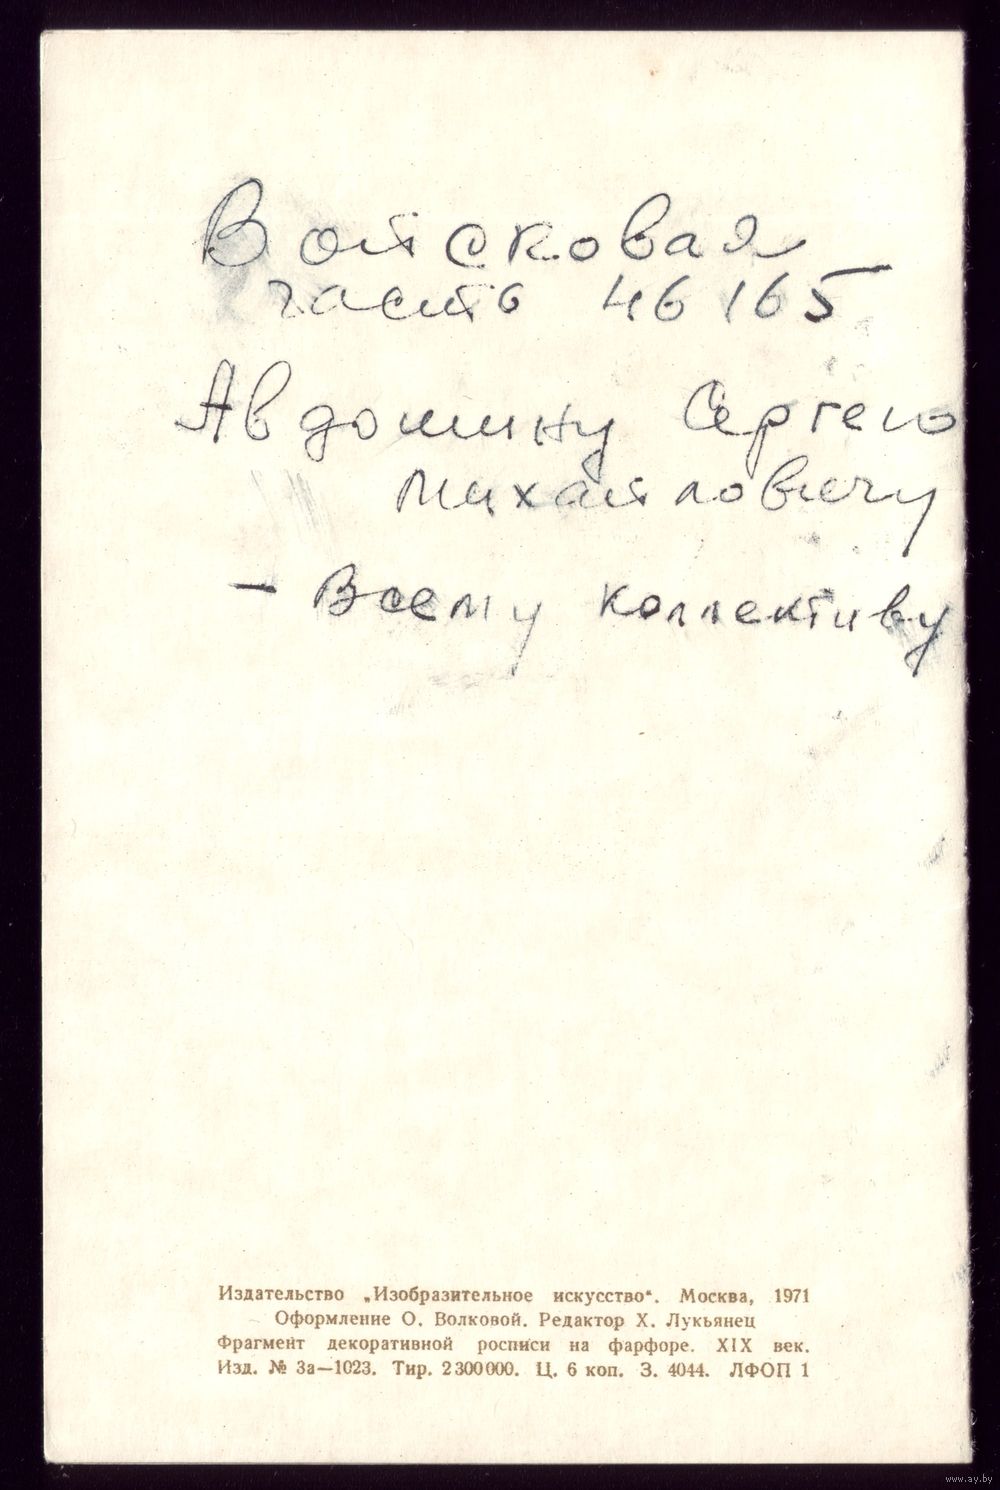 Войсковая
часть 46165
Авдошину Сергею
Михайловичу
- Всему коллективу
Издательство „Изобразительное искусство“. Москва, 1971
Оформление О. Волковой. Редактор Х. Лукьянец
Фрагмент декоративной росписи на фарфоре. XIX век.
Изд. № 3а—1023. Тир. 2300000. Ц. 6 коп. З. 4044. ЛФОП 1
www.ay.by